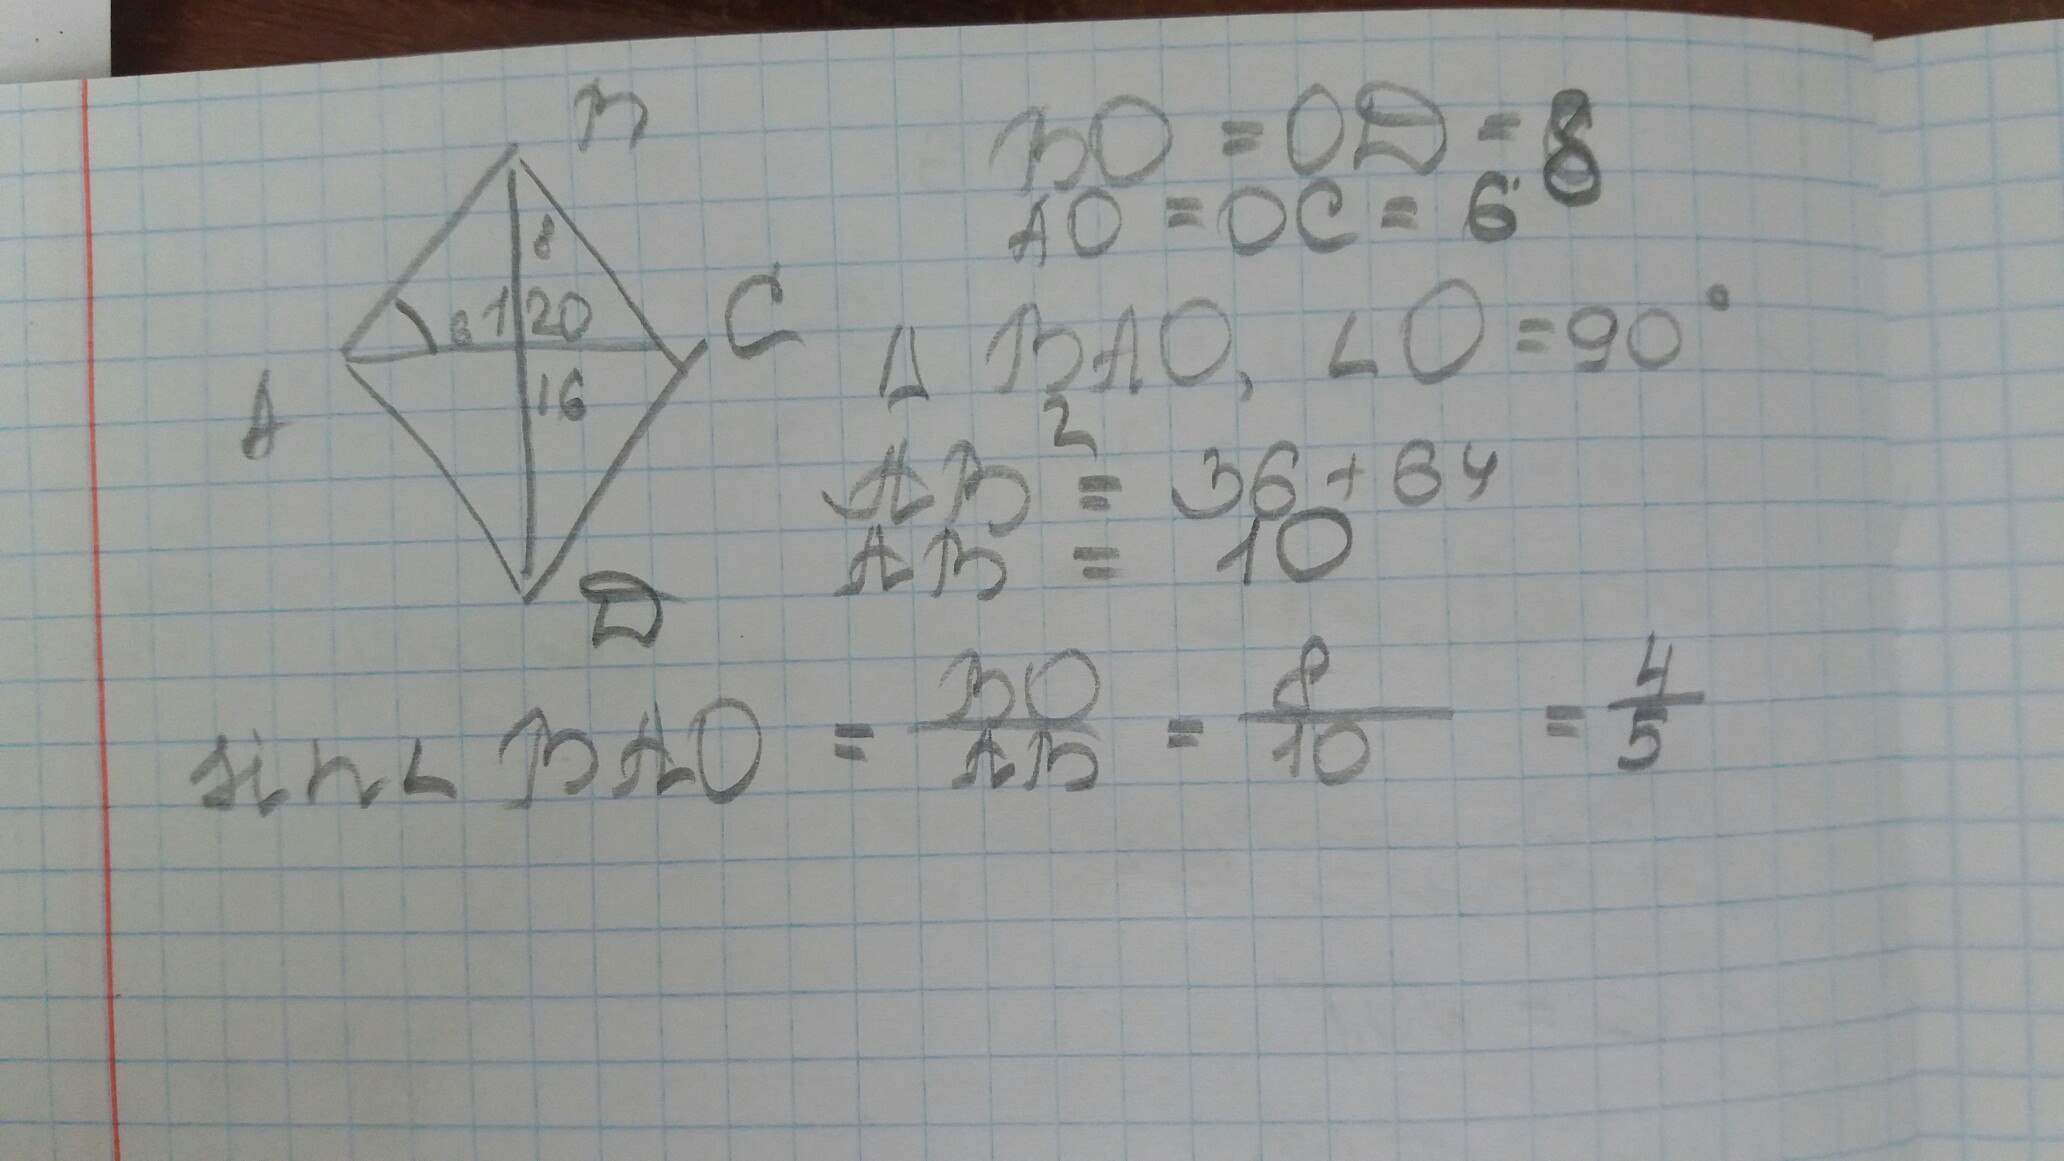 B
8
6 120
C
16
A
D
BO = OD = 8
AO = OC = 6
△ BAO, ∠O = 90°
AB² = 36 + 64
AB = 10
sin∠BAO = BO/AB = 8/10 = 4/5